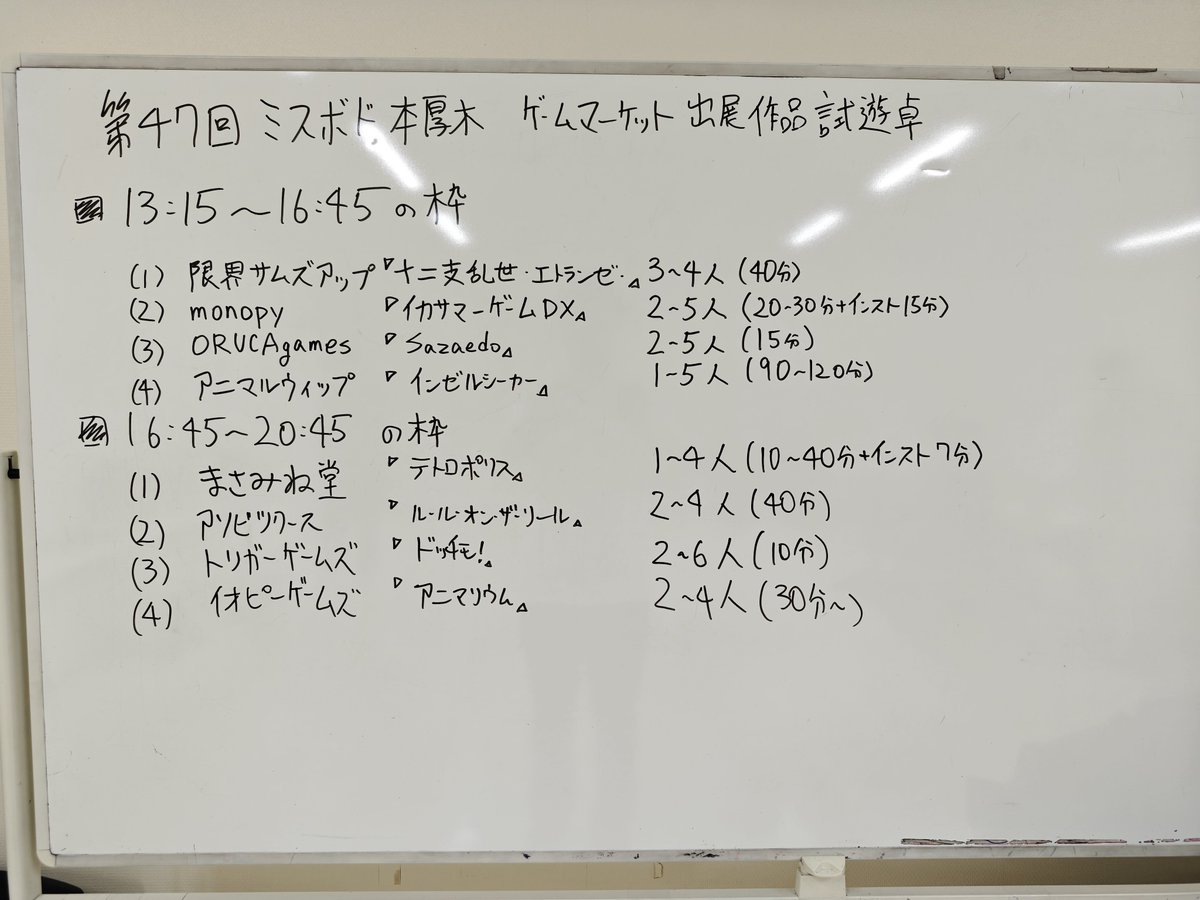 第47回 ミスボド本厚木 ゲームマーケット 出展作品 試遊卓
13:15～16:45の枠
(1) 限界サムズアップ『十二支乱世・エトランゼ・』 3~4人 (40分)
(2) monopy 『イカサマーゲームDX』 2~5人 (20~30分+インスト15分)
(3) ORUCAgames 『Sazaedo』 2~5人 (15分)
(4) アニマルウィップ 『インゼルシーカー』 1~5人 (90~120分)
16:45～20:45 の枠
(1) まさみね堂 『テトロポリス』 1~4人 (10~40分+インスト7分)
(2) アソビツクース 『ルール・オン・ザ・リール』 2~4人 (40分)
(3) トリガーゲームズ 『ドッチモ!』 2~6人 (10分)
(4) イオピーゲームズ 『アニマリウム』 2~4人 (30分~)